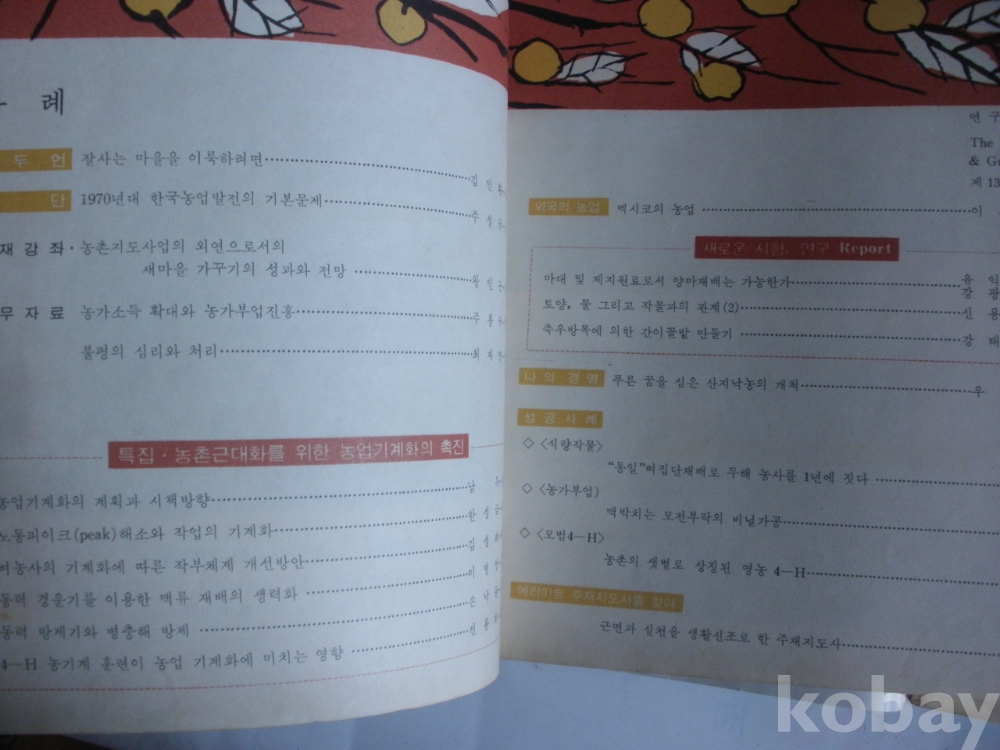 례
두 언 잘사는 마을을 이룩하려면
단 1970년대 한국농업발전의 기본문제
재 강 좌 · 농촌지도사업의 외연으로서의
새마을 가꾸기의 성과와 전망
무 자 료 농가소득 확대와 농가부업진흥
불평의 심리와 처리
특집 · 농촌근대화를 위한 농업기계화의 촉진
농업기계화의 계획과 시책방향
노동피이크(peak)해소와 작업의 기계화
벼농사의 기계화에 따른 작부체계 개선방안
동력 경운기를 이용한 맥류 재배의 생력화
동력 방제기와 병충해 방제
4-H 농기계 훈련이 농업 기계화에 미치는 영향
연 구
The
& G
제 13
외국의 농업 멕시코의 농업 이
새로운 시험, 연구 Report
마대 및 제지원료로서 양마재배는 가능한가
강
토양, 물 그리고 작물과의 관계(2) 신 용
축우방목에 의한 간이꼴밭 만들기 강 태
나의 경영 푸른 꿈을 심은 산지낙농의 개척 우
성공사례
◇ <식량작물>
"통일"벼집단재배로 두해 농사를 1년에 짓다
◇ <농가부업>
맥박치는 모전부락의 비닐가공
◇ <모범4-H>
농촌의 샛별로 상징된 영농 4-H
에리이트 주재지도사를 찾아
근면과 실천을 생활신조로 한 주재지도사
kobay